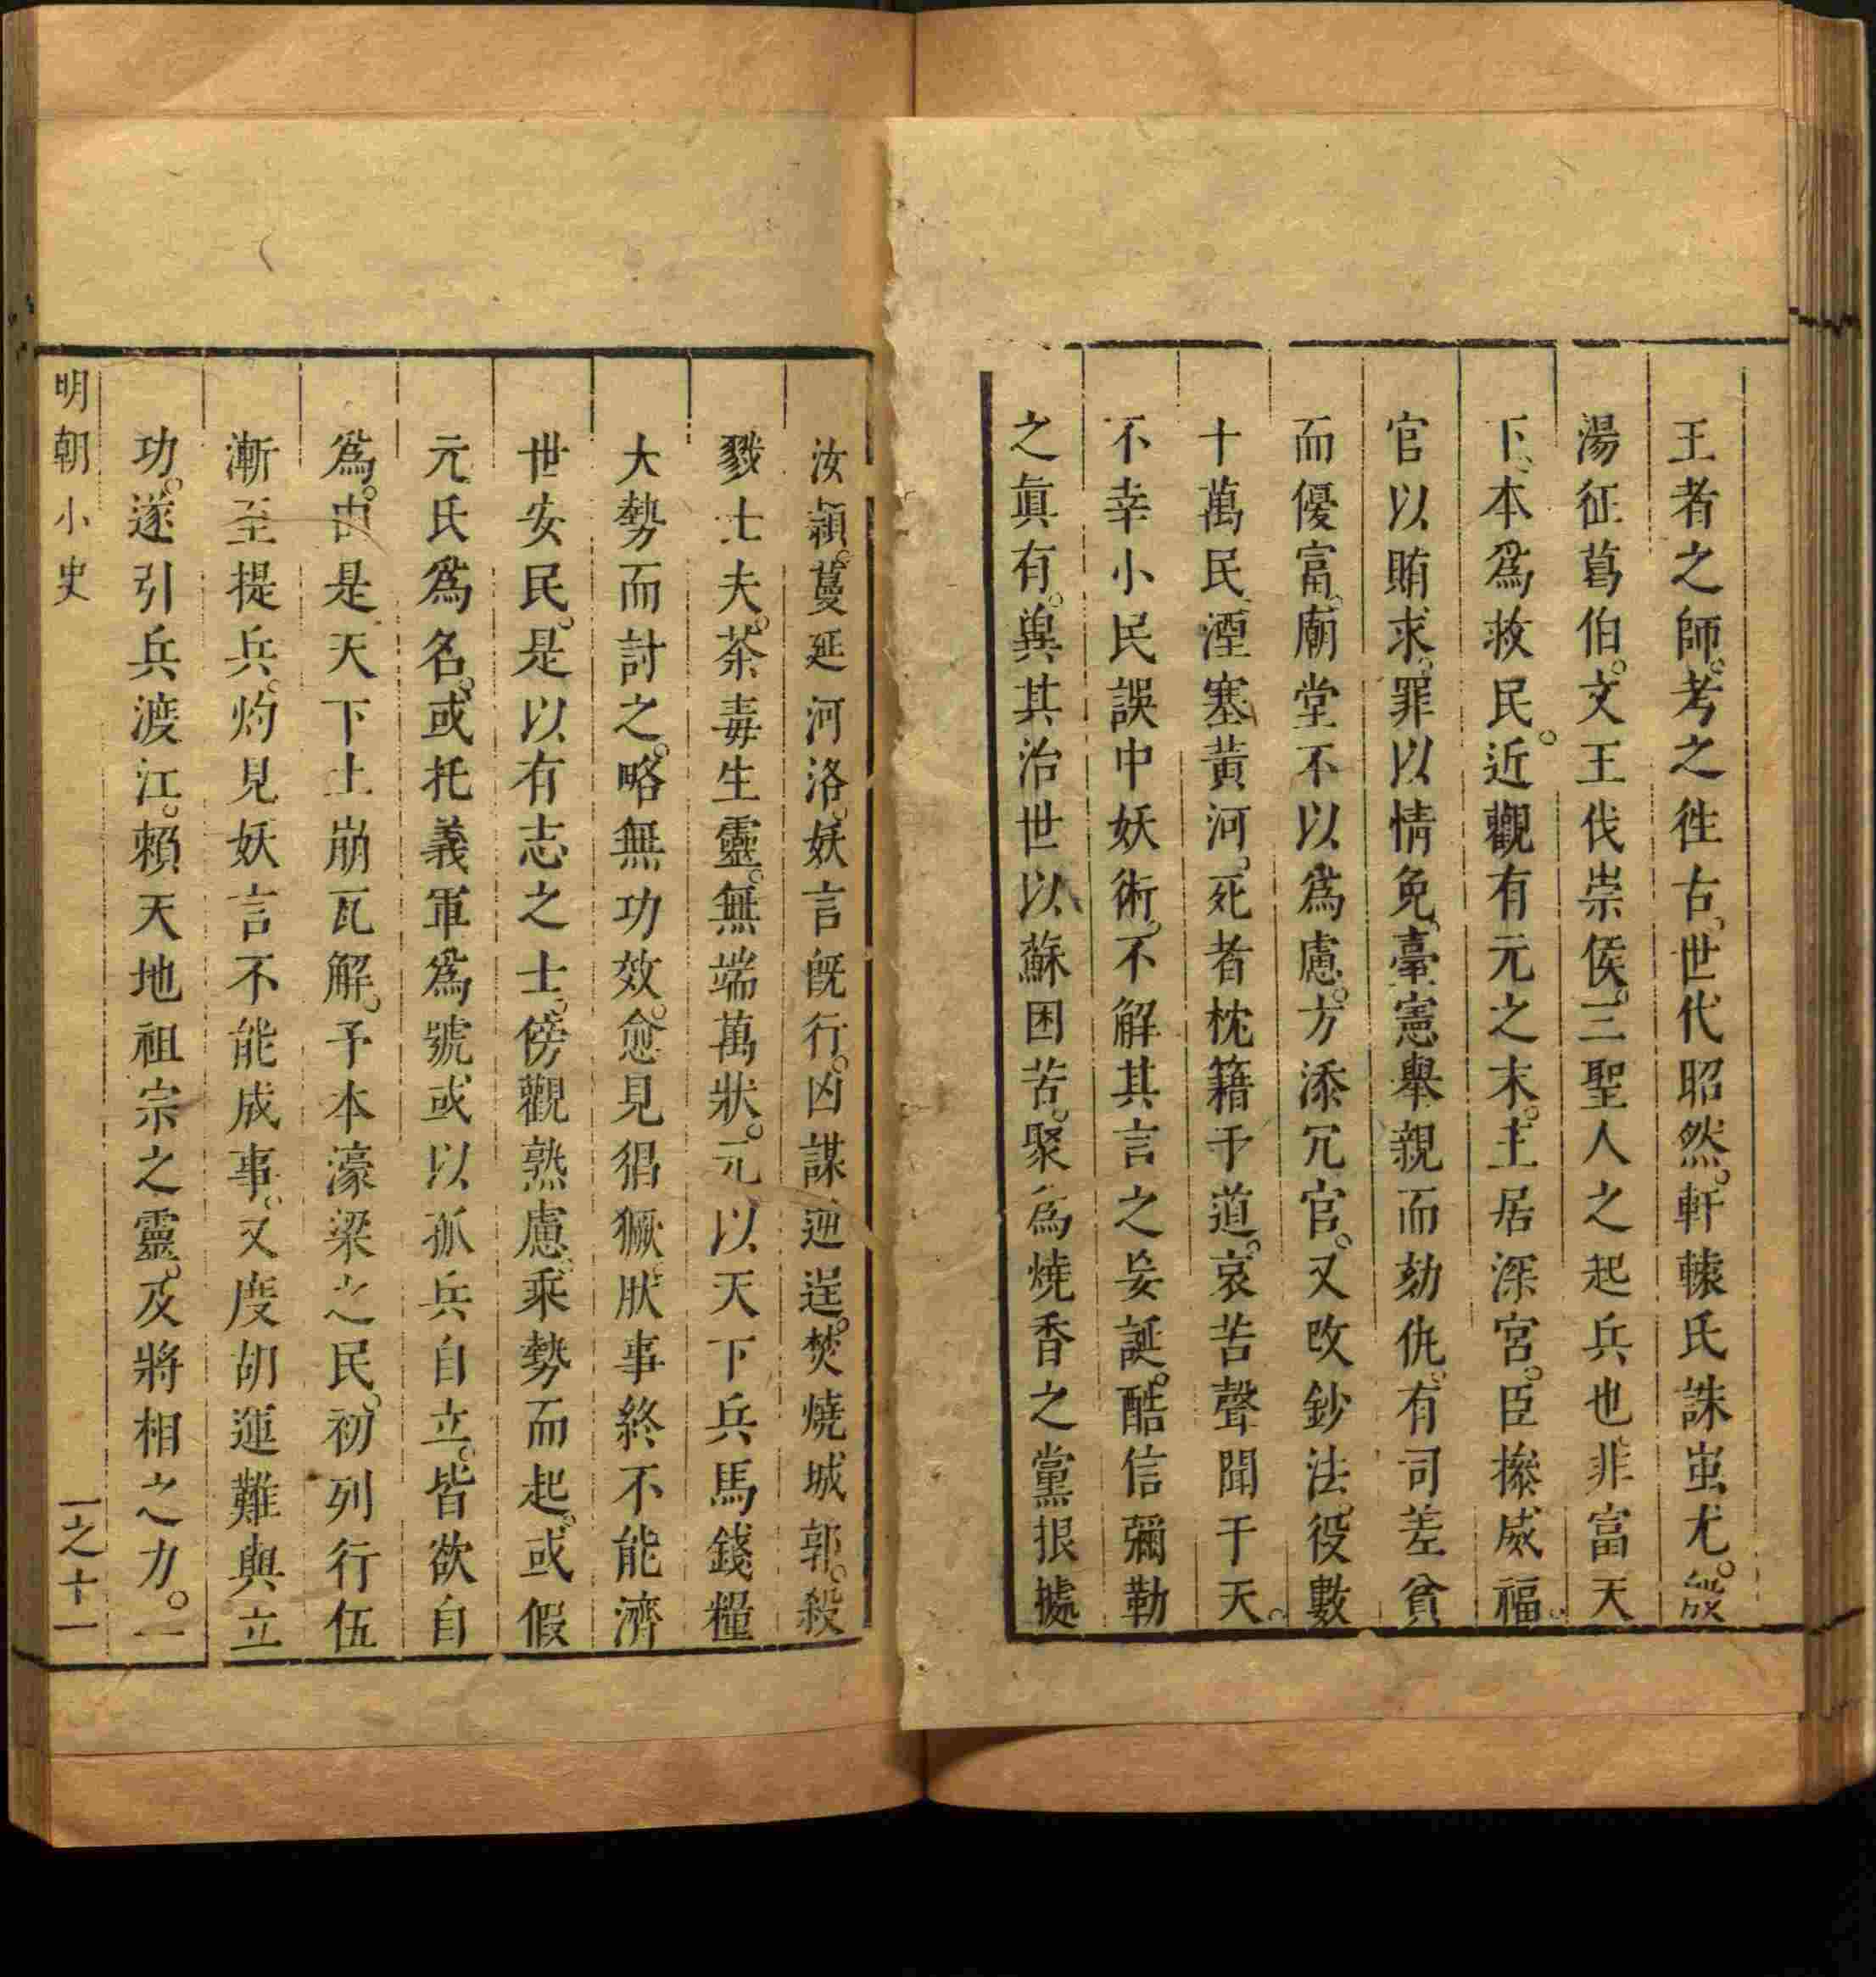 王者之師。考之徃古。世代昭然。軒轅氏誅蚩尤。成
湯征葛伯。文王伐崇侯。三聖人之起兵也。非富天
下、本爲救民。近觀有元之末。主居深宮。臣操威福。
官以賄求。罪以情免、臺憲舉親而劾仇。有司差貧
而優富。廟堂不以爲慮。方添冗官。又改鈔法。役數
十萬民。湮塞黃河。死者枕籍于道。哀苦聲聞于天。
不幸小民誤中妖術。不解其言之妄誕。酷信彌勒
之眞有。兾其治世以蘇困苦。聚爲燒香之黨。根據
汝潁。蔓延河洛。妖言旣行。凶謀逈逞。焚燒城郭。殺
戮士夫。荼毒生靈。無端萬狀。元以天下兵馬錢糧
大勢而討之。略無功效。愈見猖獗。肰事終不能濟
世安民。是以有志之士。傍觀熟慮、乘勢而起。或假
元氏爲名。或托義軍爲號或以孤兵自立。皆欲自
爲。由是天下土崩瓦解。予本濠梁之民。初列行伍
漸至提兵。灼見妖言不能成事。又度胡運難與立
功。遂引兵渡江。賴天地祖宗之靈。及將相之力。一
明朝小史
一之十一